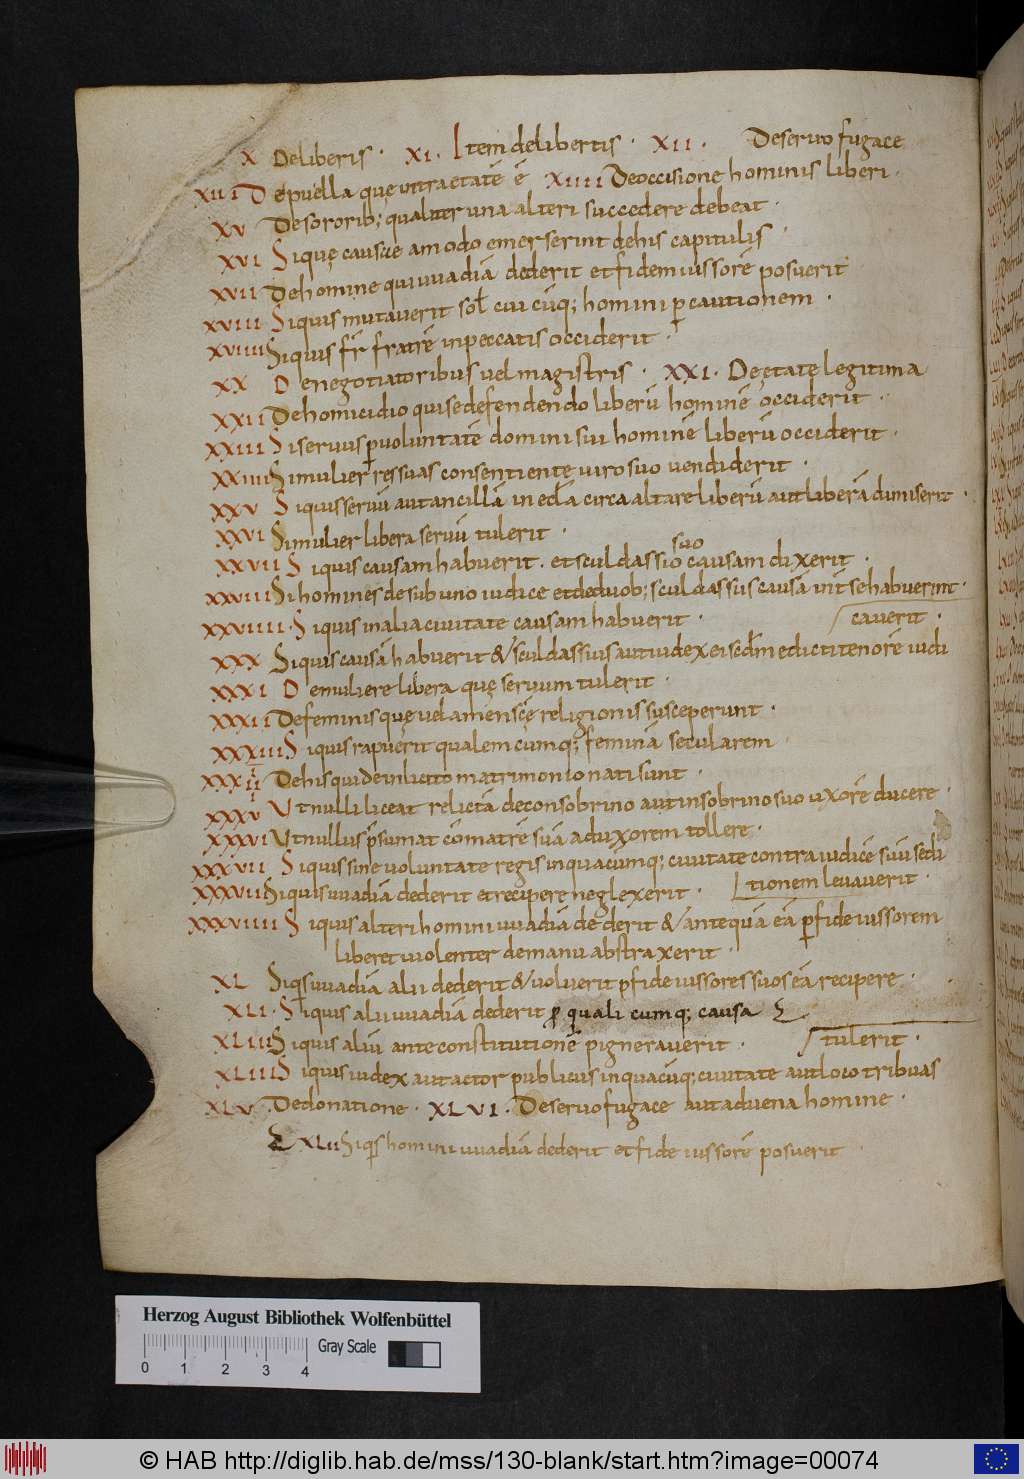 X Deliberis · XI · Item delibertis · XII · Deservo fugace
XIII Depuella que intra etatē ē XIIII Deoccisione hominis liberi ·
XV Desororib; qualiter una alteri succedere debeat ·
XVI Sique causae amodo emerserint dehis capitulis ·
XVII Dehomine qui wadiā dederit et fideiussorē posuerit
XVIII Siquis mutaverit sol cui cūq; homini p cautionem ·
XVIIII Siquis fr̄ fratrē inpeccatis occiderit ·
XX Denegotiatoribus vel magistris · XXI · Deetate legitima
XXII Dehomicidio qui sedefendendo liberū hominē occiderit ·
XXIII Siservus p voluntatē domini sui hominē liberū occiderit ·
XXIIII Simulier res suas consentiente viro suo vendiderit ·
XXV Siquis servū aut ancillā in eccła circa altare liberū aut liberā dimiserit ·
XXVI Simulier libera servū tulerit ·
XXVII Siquis causam habuerit · et sculdassio suo causam dixerit ·
XXVIII Si homines desub uno iudice et deduob; sculdassiis causā int se habuerint ·
XXVIIII · Siquis in alia civitate causam habuerit · caverit ·
XXX Siquis causā habuerit & sculdassiis aut iudex ei scdm edicti tenorē iudi
XXXI Demuliere libera que servum tulerit ·
XXXII Defeminis que velamen scē religionis susceperunt ·
XXXIII Siquis rapuerit qualemcumq; feminā secularem ·
XXXIIII Dehis qui deinlicito matrimonio nati sunt ·
XXXV Ut nulli liceat relictā deconsobrino aut insobrino suo uxorē ducere ·
XXXVI Ut nullus p̄sumat cōmatrē suā ad uxorem tollere ·
XXXVII Siquis sine voluntate regis in quacumq; civitate contra iudicē suū sedi
XXXVIII Siquis wadiā dederit et recipere neglexerit · tionem levaverit ·
XXXVIIII Siquis alteri homini wadiā dederit & antequā eā p fideiussorem
liberet violenter de manu abstraxerit ·
XL Siqs wadiā alii dederit & voluerit p fideiussores suos eā recipere ·
XLI · Siquis alii wadiā dederit p quali cumq; causa
XLII Siquis aliū ante constitutionē pigneraverit · tulerit ·
XLIIII Siquis iudex aut actor publicus in quacūq; civitate aut loco tribuas
XLV Dedonatione · XLVI · Deservo fugace aut advena homine ·
XLII Siqs homini wadiā dederit et fideiussorē posuerit
Herzog August Bibliothek Wolfenbüttel
Gray Scale
0 1 2 3 4
© HAB http://diglib.hab.de/mss/130-blank/start.htm?image=00074